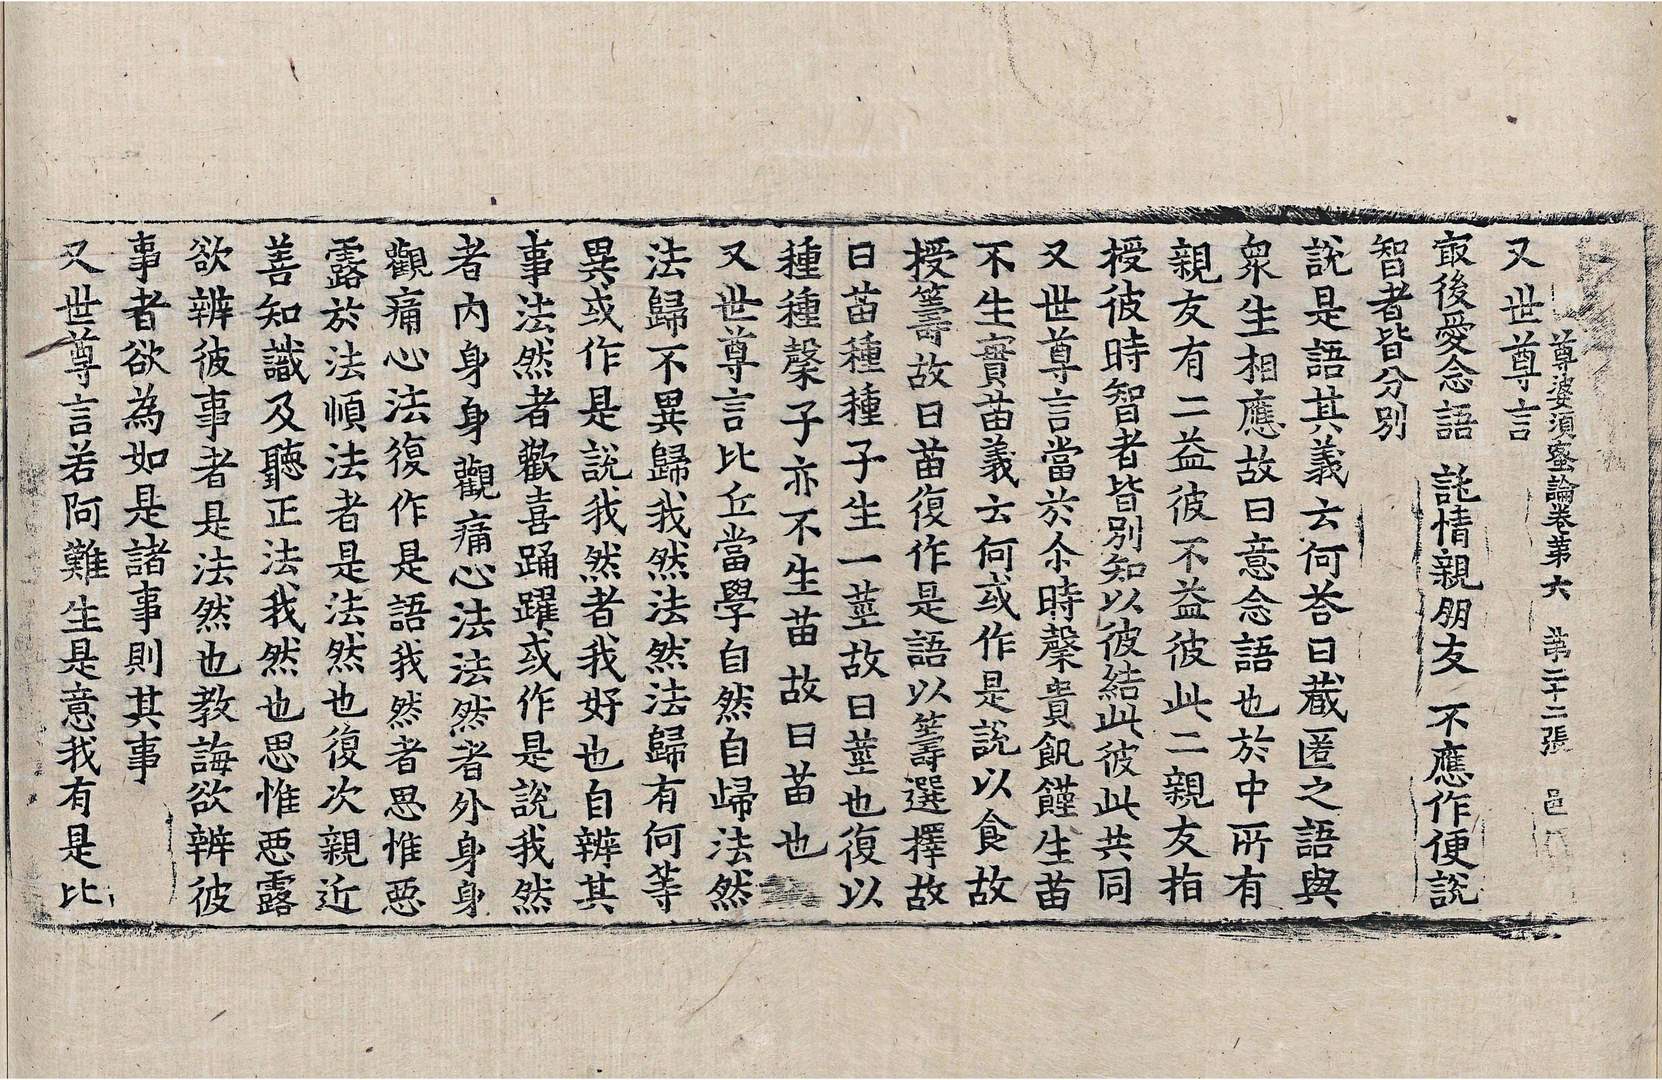 尊婆須蜜論卷第六 第二十二張 邑
又世尊言
㝡後愛念語 託情親朋友 不應作便說
智者皆分別
說是語其義云何荅曰藏匿之語與
衆生相應故曰意念語也於中所有
親友有二益彼不益彼此二親友指
授彼時智者皆別知以彼結此彼此共同
又世尊言當於尒時槃貴飢饉生苗
不生實苗義云何或作是說以食故
授籌故曰苗復作是語以籌選擇故
曰苗種種子生一莖故曰莖也復以
種種槃子亦不生苗故曰苗也
又世尊言比丘當學自然自歸法然
法歸不異歸我然法然法歸有何等
異或作是說我然者我好也自辦其
事法然者歡喜踊躍或作是說我然
者內身身觀痛心法法然者外身身
觀痛心法復作是語我然者思惟惡
露於法順法者是法然也復次親近
善知識及聽正法我然也思惟惡露
欲辦彼事者是法然也教誨欲辦彼
事者欲為如是諸事則其事
又世尊言若阿難生是意我有是比